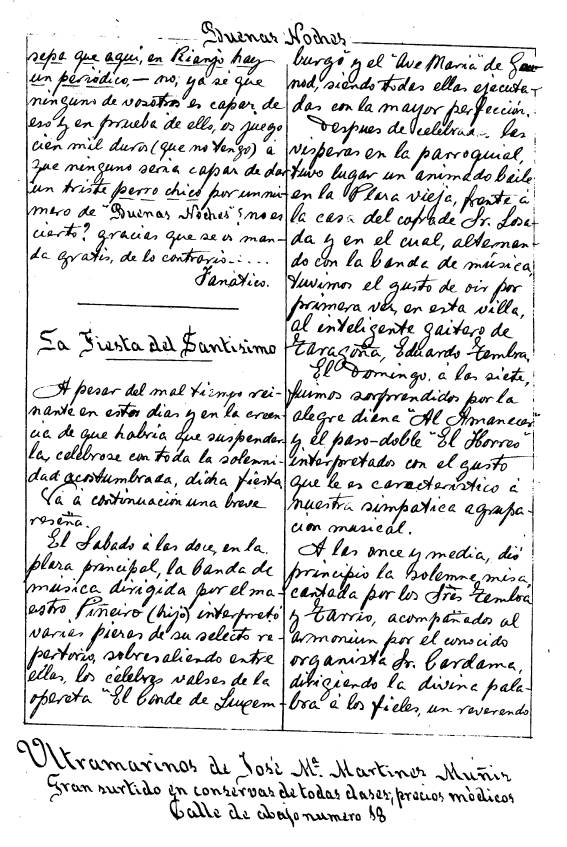 Buenas Noches
sepa que aquí, en Rianjo hay
un periódico,— no, ya sé que
ninguno de vosotros es capaz de
eso y en prueba de ello, os juego
cien mil duros (que no tengo) á
que ninguno seria capaz de dar
un triste perro chico por un nú-
mero de "Buenas Noches"; no es
cierto? gracias que se os man-
da gratis, de lo contrario.....
Fanático.
La Fiesta del Santísimo
A pesar del mal tiempo rei-
nante en estos dias y en la creen-
cia de que habria que suspender-
la, celebrose con toda la solemni-
dad acostumbrada, dicha fiesta
Va á continuación una breve
reseña.
El Sabado á las doce, en la
plaza principal, la banda de
música dirigida por el ma-
estro Piñeiro (hijo) interpretó
varias piezas de su selecto re-
pertorio, sobresaliendo entre
ellas, los célebres valses de la
opereta "El Conde de Luxem-
burgo y el "Ave Maria" de Gou-
nod, siendo todas ellas ejecuta-
das con la mayor perfección.
Despues de celebrad.. las
visperas en la parroquial,
tuvo lugar un animado baile
en la Plaza vieja, frente á
la casa del cofrade Sr. Losa-
da y en el cual, alternan-
do con la banda de música,
tuvimos el gusto de oir por
primera vez, en esta villa,
al inteligente gaitero de
Taragoña, Eduardo Tembra,
El Domingo, á las siete,
fuimos sorprendidos por la
alegre diana "Al Amanecer"
y el paso-doble "El Horres"
interpretados con el gusto
que le es caracteristico á
nuestra simpatica agrupa-
ción musical.
A las once y media, dió
principio la solemne misa,
cantada por los Sres Tembra
y Tarrio, acompañados al
armonium por el conocido
organista Sr. Cardama,
dirigiendo la divina pala-
bra á los fieles, un reverendo
Ultramarinos de José Mª. Martinez Muñiz
Gran surtido en conservas de todas clases, precios módicos
Calle de abajo numero 18